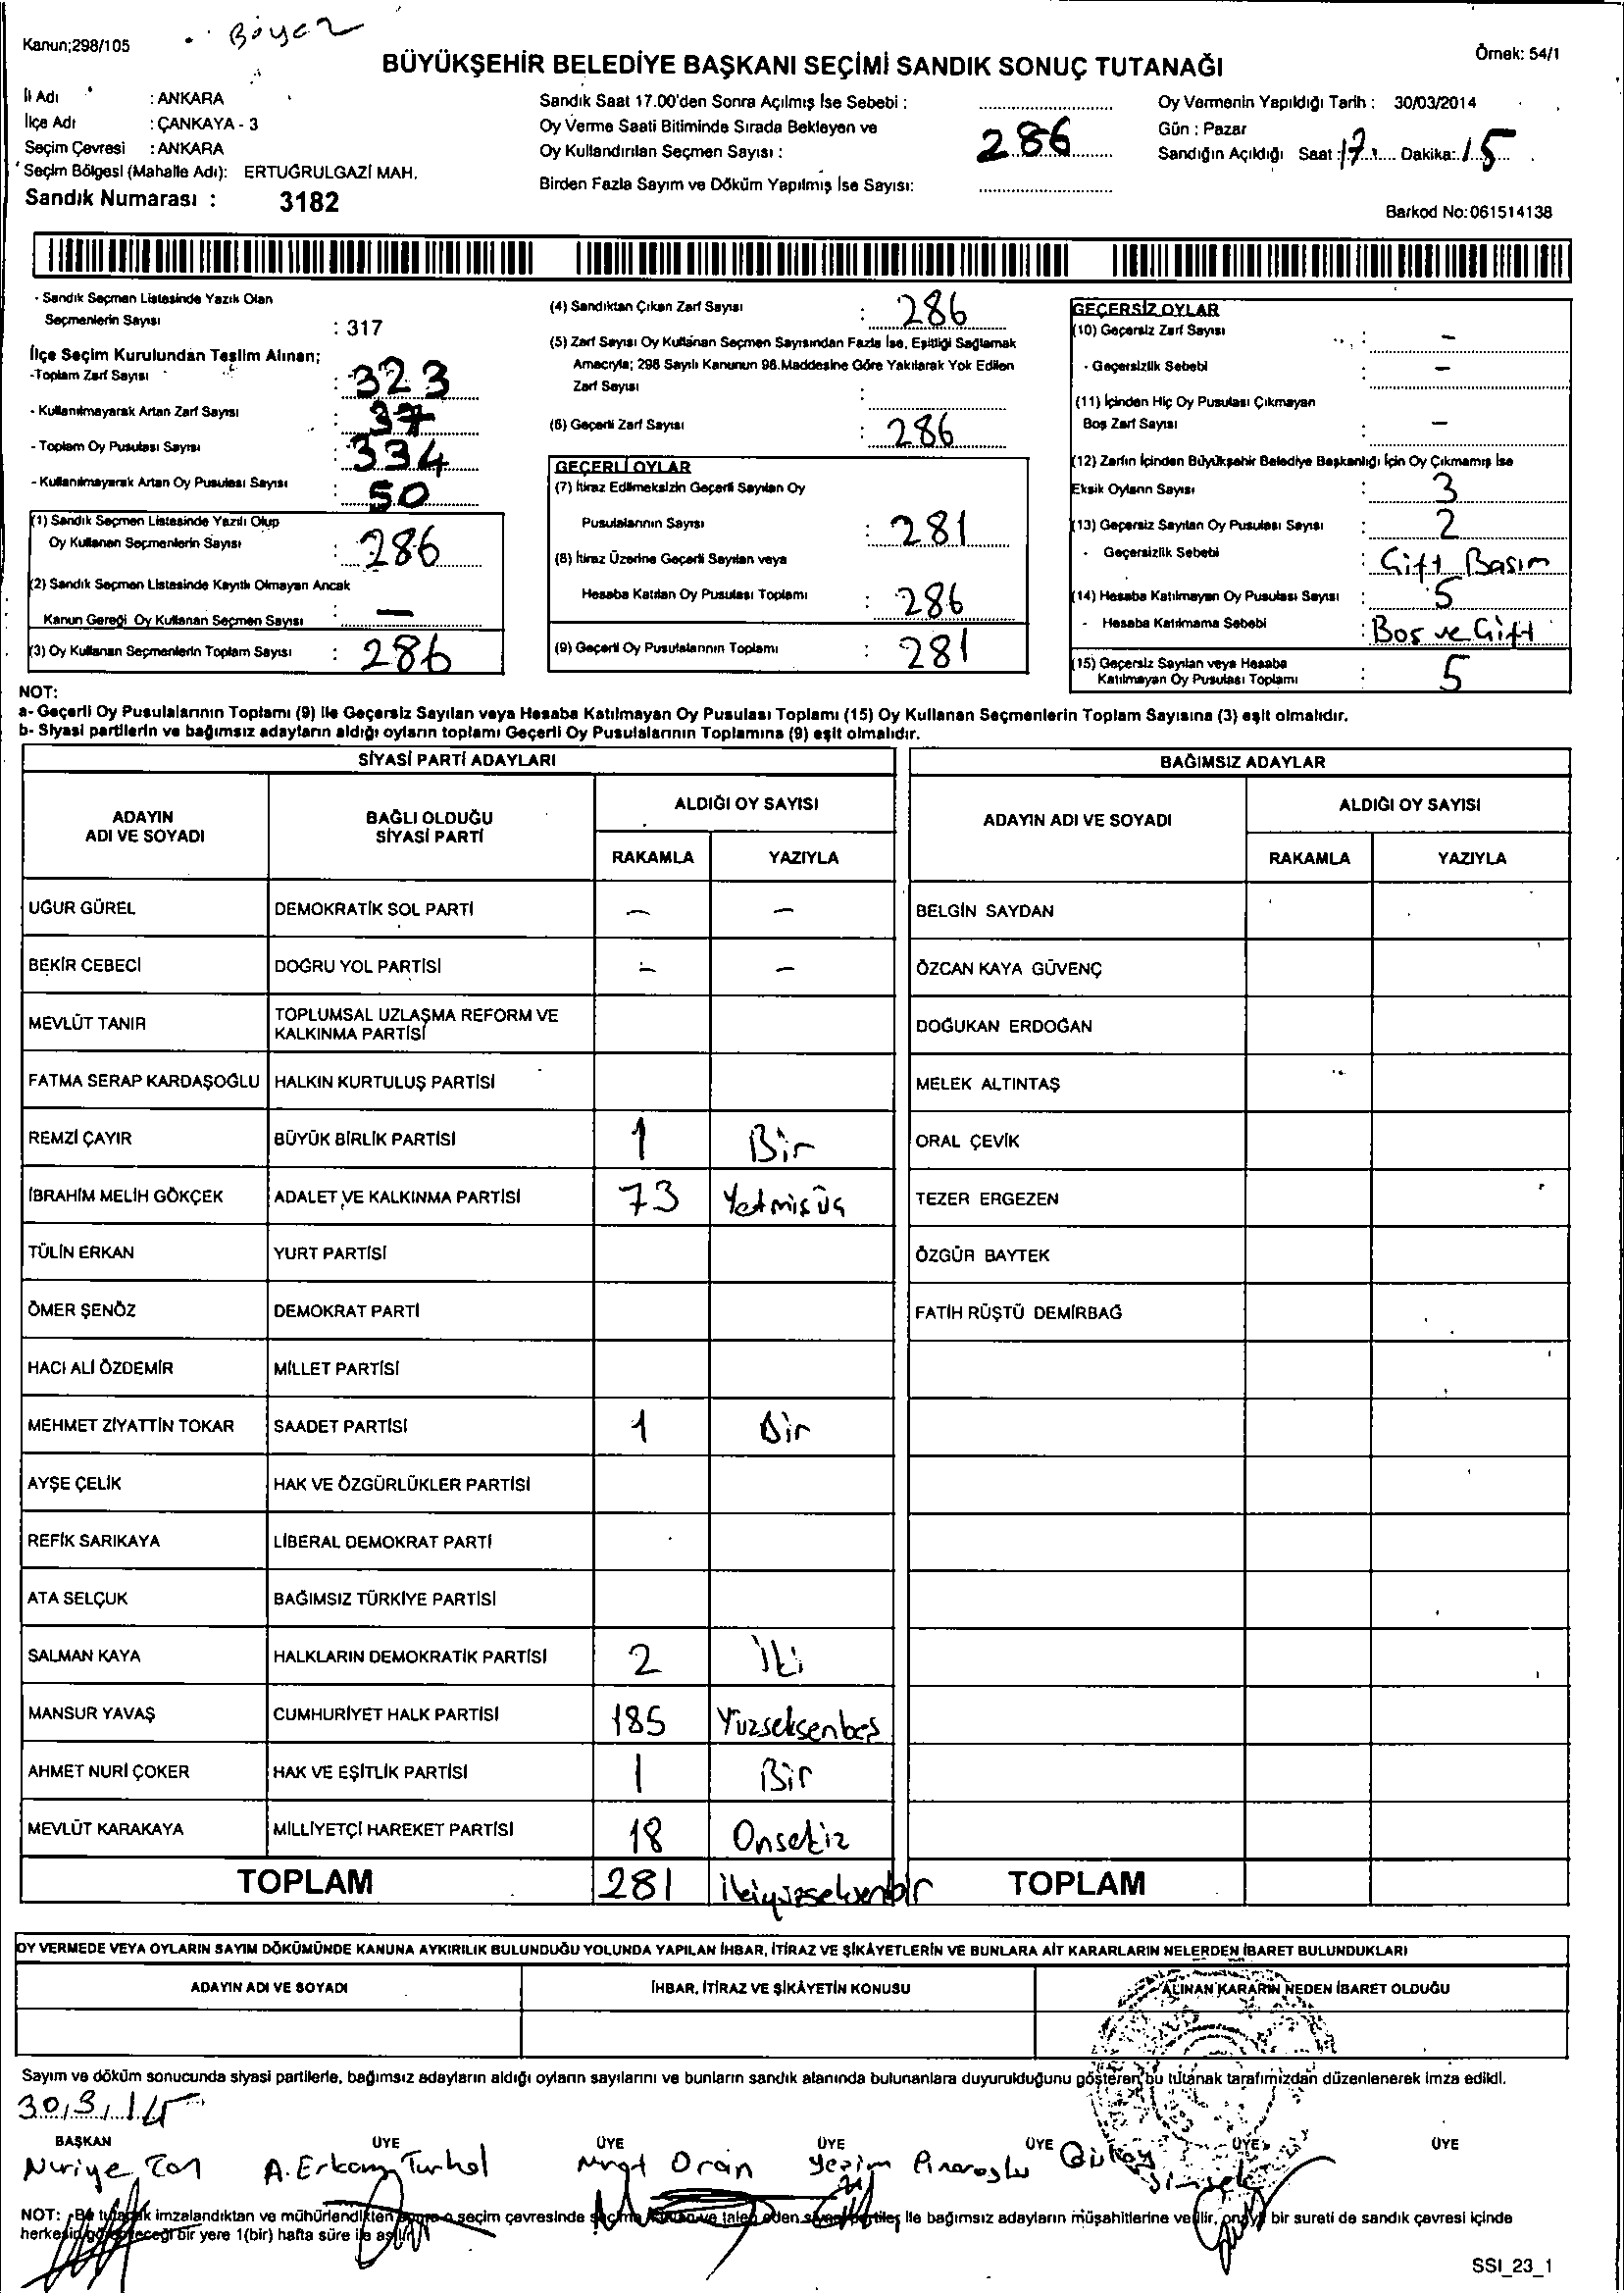 Kanun;298/105
Örnek: 54/1
BÜYÜKŞEHİR BELEDİYE BAŞKANI SEÇİMİ SANDIK SONUÇ TUTANAĞI
İl Adı : ANKARA
İlçe Adı : ÇANKAYA - 3
Seçim Çevresi : ANKARA
Seçim Bölgesi (Mahalle Adı): ERTUĞRULGAZİ MAH.
Sandık Numarası : 3182
Sandık Saat 17.00'den Sonra Açılmış İse Sebebi :
Oy Verme Saati Bitiminde Sırada Bekleyen ve
Oy Kullandırılan Seçmen Sayısı : 286
Birden Fazla Sayım ve Döküm Yapılmış İse Sayısı:
Oy Vermenin Yapıldığı Tarih : 30/03/2014
Gün : Pazar
Sandığın Açıldığı Saat : 17 Dakika: 15
Barkod No:061514138
- Sandık Seçmen Listesinde Yazılı Olan
Seçmenlerin Sayısı : 317
İlçe Seçim Kurulundan Teslim Alınan;
-Toplam Zarf Sayısı : 323
- Kullanılmayarak Artan Zarf Sayısı : 37
- Toplam Oy Pusulası Sayısı : 334
- Kullanılmayarak Artan Oy Pusulası Sayısı : 50
(1) Sandık Seçmen Listesinde Yazılı Olup
Oy Kullanan Seçmenlerin Sayısı : 286
(2) Sandık Seçmen Listesinde Kayıtlı Olmayan Ancak
Kanun Gereği Oy Kullanan Seçmen Sayısı : —
(3) Oy Kullanan Seçmenlerin Toplam Sayısı : 286
(4) Sandıktan Çıkan Zarf Sayısı : 286
(5) Zarf Sayısı Oy Kullanan Seçmen Sayısından Fazla İse, Eşitliği Sağlamak
Amacıyla; 298 Sayılı Kanunun 98.Maddesine Göre Yakılarak Yok Edilen
Zarf Sayısı :
(6) Geçerli Zarf Sayısı : 286
GEÇERLİ OYLAR
(7) İtiraz Edilmeksizin Geçerli Sayılan Oy
Pusulalarının Sayısı : 281
(8) İtiraz Üzerine Geçerli Sayılan veya
Hesaba Katılan Oy Pusulası Toplamı : 286
(9) Geçerli Oy Pusulalarının Toplamı : 281
GEÇERSİZ OYLAR
(10) Geçersiz Zarf Sayısı : —
- Geçersizlik Sebebi : —
(11) İçinden Hiç Oy Pusulası Çıkmayan
Boş Zarf Sayısı : —
(12) Zarfın İçinden Büyükşehir Belediye Başkanlığı İçin Oy Çıkmamış İse
Eksik Oyların Sayısı : 3
(13) Geçersiz Sayılan Oy Pusulası Sayısı : 2
- Geçersizlik Sebebi : Çift Basım
(14) Hesaba Katılmayan Oy Pusulası Sayısı : 5
- Hesaba Katılmama Sebebi : Boş ve Çift
(15) Geçersiz Sayılan veya Hesaba
Katılmayan Oy Pusulası Toplamı : 5
NOT:
a- Geçerli Oy Pusulalarının Toplamı (9) ile Geçersiz Sayılan veya Hesaba Katılmayan Oy Pusulası Toplamı (15) Oy Kullanan Seçmenlerin Toplam Sayısına (3) eşit olmalıdır.
b- Siyasi partilerin ve bağımsız adayların aldığı oyların toplamı Geçerli Oy Pusulalarının Toplamına (9) eşit olmalıdır.
SİYASİ PARTİ ADAYLARI
ADAYIN ADI VE SOYADI
BAĞLI OLDUĞU SİYASİ PARTİ
ALDIĞI OY SAYISI
RAKAMLA YAZIYLA
UĞUR GÜREL DEMOKRATİK SOL PARTİ — —
BEKİR CEBECİ DOĞRU YOL PARTİSİ — —
MEVLÜT TANIR TOPLUMSAL UZLAŞMA REFORM VE
KALKINMA PARTİSİ
FATMA SERAP KARDAŞOĞLU HALKIN KURTULUŞ PARTİSİ
REMZİ ÇAYIR BÜYÜK BİRLİK PARTİSİ 1 Bir
İBRAHİM MELİH GÖKÇEK ADALET VE KALKINMA PARTİSİ 73 Yetmişüç
TÜLİN ERKAN YURT PARTİSİ
ÖMER ŞENÖZ DEMOKRAT PARTİ
HACI ALİ ÖZDEMİR MİLLET PARTİSİ
MEHMET ZİYATTİN TOKAR SAADET PARTİSİ 1 Bir
AYŞE ÇELİK HAK VE ÖZGÜRLÜKLER PARTİSİ
REFİK SARIKAYA LİBERAL DEMOKRAT PARTİ
ATA SELÇUK BAĞIMSIZ TÜRKİYE PARTİSİ
SALMAN KAYA HALKLARIN DEMOKRATİK PARTİSİ 2 İki
MANSUR YAVAŞ CUMHURİYET HALK PARTİSİ 185 Yüzseksenbeş
AHMET NURİ ÇOKER HAK VE EŞİTLİK PARTİSİ 1 Bir
MEVLÜT KARAKAYA MİLLİYETÇİ HAREKET PARTİSİ 18 Onsekiz
TOPLAM 281 ikiyüzseksenbir
BAĞIMSIZ ADAYLAR
ADAYIN ADI VE SOYADI
ALDIĞI OY SAYISI
RAKAMLA YAZIYLA
BELGİN SAYDAN
ÖZCAN KAYA GÜVENÇ
DOĞUKAN ERDOĞAN
MELEK ALTINTAŞ
ORAL ÇEVİK
TEZER ERGEZEN
ÖZGÜR BAYTEK
FATİH RÜŞTÜ DEMİRBAĞ
TOPLAM
OY VERMEDE VEYA OYLARIN SAYIM DÖKÜMÜNDE KANUNA AYKIRILIK BULUNDUĞU YOLUNDA YAPILAN İHBAR, İTİRAZ VE ŞİKÂYETLERİN VE BUNLARA AİT KARARLARIN NELERDEN İBARET BULUNDUKLARI
ADAYIN ADI VE SOYADI
İHBAR, İTİRAZ VE ŞİKÂYETİN KONUSU
ALINAN KARARIN NEDEN İBARET OLDUĞU
Sayım ve döküm sonucunda siyasi partilerle, bağımsız adayların aldığı oyların sayılarını ve bunların sandık alanında bulunanlara duyurulduğunu gösteren bu tutanak tarafımızdan düzenlenerek imza edildi.
30/3/14
BAŞKAN ÜYE ÜYE ÜYE ÜYE ÜYE ÜYE
Nuriye A. Erkan Turhol Oran Yezim Pınaroglu
NOT: Bu tutanak imzalandıktan ve mühürlendikten sonra o seçim çevresinde seçime katılan ve talep eden siyasi partiler ile bağımsız adayların müşahitlerine verilir, onaylı bir sureti de sandık çevresi içinde
herkesin görebileceği bir yere 1(bir) hafta süre ile asılır.
SSI_23_1